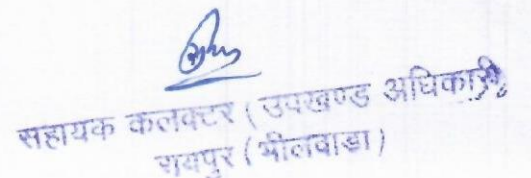 सहायक कलक्टर (उपखण्ड अधिकारी)
रायपुर (भीलवाडा)